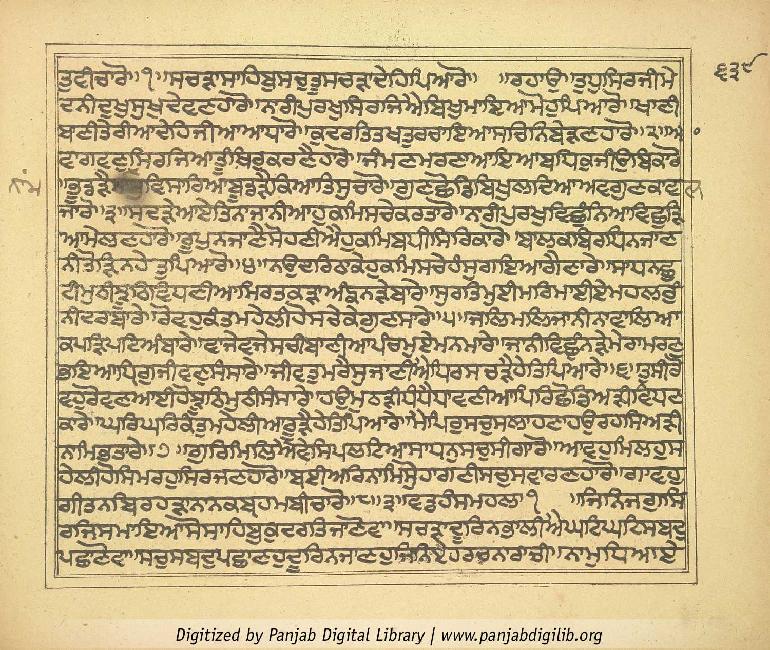 ੬੩੯
ਤੁਵੀਚਾਰੋ॥੧॥ਸਚੜਾਸਾਹਿਬੁਸਚੁਤੂਸਚੜਾਦੇਹਿਪਿਆਰੋ॥ ॥ਰਹਾਉ॥ਤੁਧੁਸਿਰਜੀਮੇ
ਦਨੀਦੁਖੁਸੁਖੁਦੇਵਣਹਾਰੋ॥ਨਾਰੀਪੁਰਖਸਿਰਜਿਐਬਿਖੁਮਾਇਆਮੋਹੁਪਿਆਰੋ॥ਖਾਣੀ
ਬਾਣੀਤੇਰੀਆਦੇਹਿਜੀਆਆਧਾਰੋ॥ਕੁਦਰਤਿਤਖਤੁਰਚਾਇਆਸਚਿਨਿਬੇੜਣਹਾਰੋ॥੨॥ਆ
ਵਾਗਵਣੁਸਿਰਜਿਆਤੂਥਿਰੁਕਰਣੈਹਾਰੋ॥ਜੀਮਣੁਮਰਣਾਆਇਆਬਧਿਕੁਜੀਉਬਿਕਾਰੋ
॥ਭੂਡੜੈ ਵਿਸਾਰਿਆਬੂਡੜੈਕਿਆਤਿਸੁਚਾਰੋ॥ਗੁਣਛੋਡਿਬਿਖੁਲਦਿਆਅਵਗੁਣਕਾਵਣ
ਜਾਰੋ॥੩॥ਸਦੜੇਆਏਤਿਨਾਜਾਨੀਆਹੁਕਮਿਸਚੇਕਰਤਾਰੋ॥ਨਾਰੀਪੁਰਖਵਿਛੁੰਨਿਆਵਿਛੁੜਿ
ਆਮੇਲਣਹਾਰੋ॥ਰੂਪੁਨਜਾਣੈਸੋਹਣੀਐਹੁਕਮਿਬਧੀਸਿਰਿਕਾਰੋ॥ਬਾਲਕਬਿਰਧਿਨਜਾਣ
ਨੀਤੋੜਿਨਹੇਤੁਪਿਆਰੋ॥੪॥ਨਉਦਰਿਠਾਕੇਹੁਕਮਿਸਚੈਹੰਸੁਗਇਆਗੈਣਾਰੇ॥ਸਾਧਨਛੁ
ਟੀਮੁਠੀਝੂਠਿਵਿਧਣੀਆਮਿਰਤਕੜਾਅੰਙਨੜੇਬਾਰੇ॥ਸੁਰਤਿਮੁਈਮਰਿਮਾਈਏਮਹਲਰੁੰ
ਨੀਦਰਬਾਰੇ॥ਰੋਵਹੁਕੰਤਮਹੇਲੀਹੋਸਚੇਕੇਗੁਣਸਾਰੇ॥੫॥ਜਲਿਮਲਿਜਾਨੀਨਾਵਾਲਿਆ
ਕਪੜਿਪਟਿਅੰਬਾਰੇ॥ਵਾਜੇਵਜੇਸਚੀਬਾਣੀਆਪੰਚਮੁਏਮਨਮਾਰੇ॥ਜਾਨੀਵਿਛੁੰਨੜੇਮੇਰਾਮਰਣੁ
ਭਇਆਧਿਗੁਜੀਵਣੁਸੰਸਾਰੇ॥ਜੀਵਤੁਮਰੈਸੁਜਾਣੀਐਪਿਰਸਚੜੈਹੇਤਿਪਿਆਰੇ॥੬॥ਤੁਸੀਰੋ
ਵਹੁਰੋਵਣਆਈਹੋਝੂਠਿਮੁਠੀਸੰਸਾਰੇ॥ਹਉਮੁਠੜੀਧੰਧੈਧਾਵਣੀਆਪਿਰਿਛੋਡਿਅੜੀਵਿਧਣ
ਕਾਰੇ॥ਘਰਿਘਰਿਕੰਤੁਮਹੇਲੀਆਰੂੜੈਹੇਤਿਪਿਆਰੇ॥ਮੈਪਿਰੁਸਚੁਸਾਲਾਹਣਾਹਉਰਹਸਿਅੜੀ
ਨਾਮਿਭਤਾਰੇ॥੭॥ਗੁਰਿਮਿਲਿਐਵੇਸੁਪਲਟਿਆਸਾਧਨਸਚੁਸੀਗਾਰੋ॥ਆਵਹੁਮਿਲਹੁਸ
ਹੇਲੀਹੋਸਿਮਰਹੁਸਿਰਜਣਹਾਰੋ॥ਬਈਅਰਿਨਾਮਿਸੋੁਹਾਗਣੀਸਚੁਸਵਾਰਣਹਾਰੋ॥ਗਾਵਹੁ
ਗੀਤੁਨਬਿਰਹੜਾਨਾਨਕਬ੍ਰਹਮਬੀਚਾਰੋ॥੮॥੩॥ਵਡਹੰਸਮਹਲਾ੧ ॥ਜਿਨਿਜਗੁਸਿ
ਰਜਿਸਮਾਇਆਸੋਸਾਹਿਬੁਕੁਦਰਤਿਜਾਣੋਵਾ॥ਸਚੜਾਦੂਰਿਨਭਾਲੀਐਘਟਿਘਟਿਸਬਦੁ
ਪਛਾਣੋਵਾ॥ਸਚੁਸਬਦੁਪਛਾਣਹੁਦੂਰਿਨਜਾਣਹੁਜਿਨਿਏਹਰਚਨਾਰਾਚੀ॥ਨਾਮੁਧਿਆਏ
Digitized by Panjab Digital Library | www.panjabdigilib.org